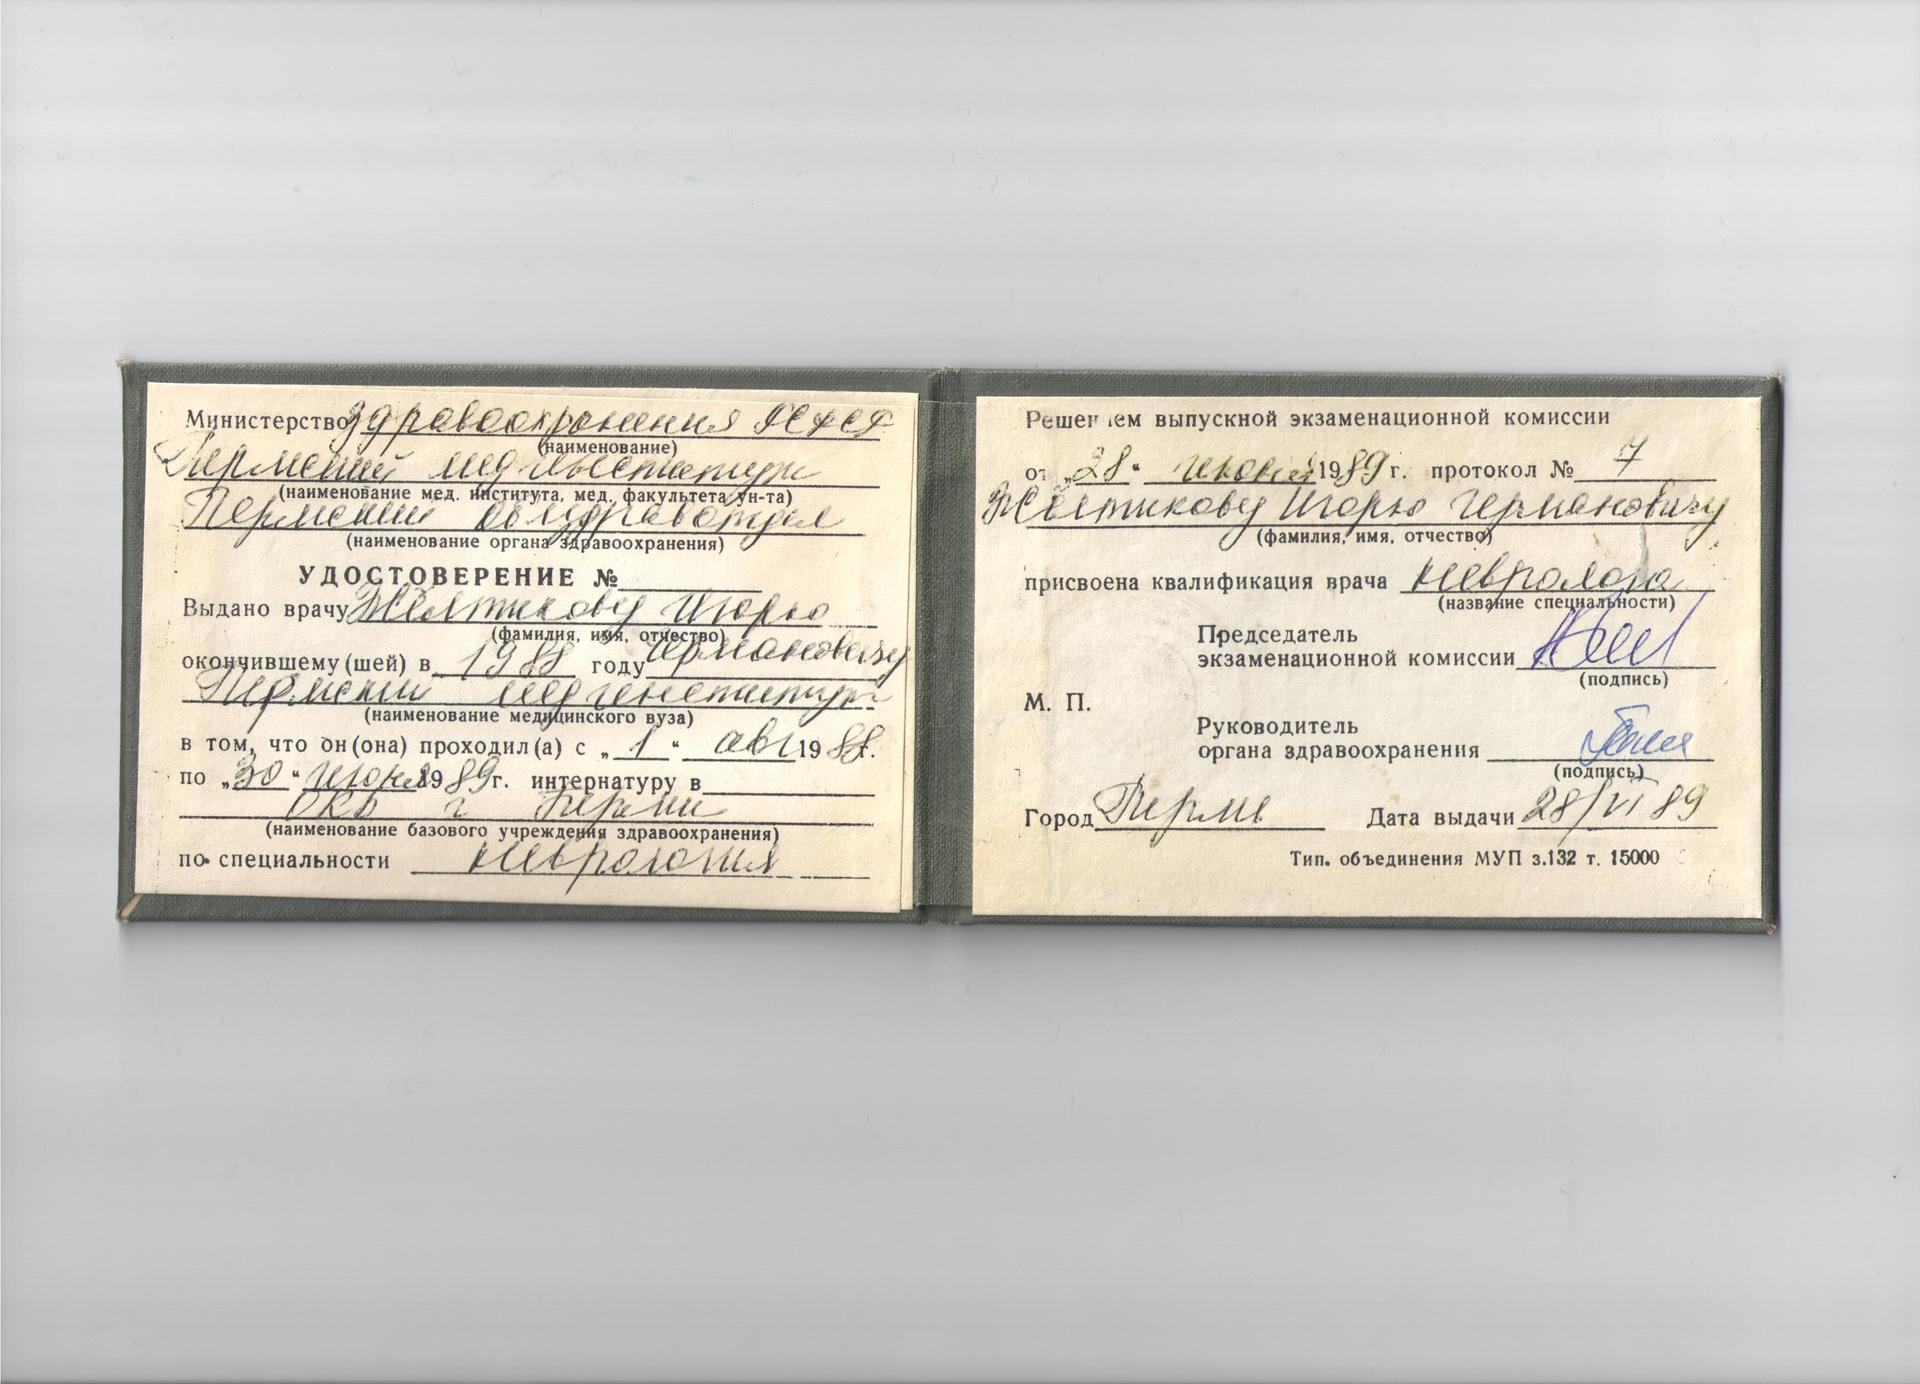 Министерство здравоохранения РСФСР
(наименование)
Пермский мединститут
(наименование мед. института, мед. факультета ун-та)
Пермский облздравотдел
(наименование органа здравоохранения)
УДОСТОВЕРЕНИЕ №
Выдано врачу Желтикову Игорю
(фамилия, имя, отчество)
Германовичу
окончившему (шей) в 1988 году
Пермский мединститут
(наименование медицинского вуза)
в том, что он (она) проходил (а) с „1“ авг 1988г.
по „30“ июня 1989г. интернатуру в
ОКБ г Перми
(наименование базового учреждения здравоохранения)
по специальности неврология
Решением выпускной экзаменационной комиссии
от „28“ июня 1989 г. протокол № 7
Желтикову Игорю Германовичу
(фамилия, имя, отчество)
присвоена квалификация врача невролога
(название специальности)
Председатель
экзаменационной комиссии
(подпись)
М. П.
Руководитель
органа здравоохранения
(подпись)
Город Пермь Дата выдачи 28/VI 89
Тип. объединения МУП з.132 т. 15000